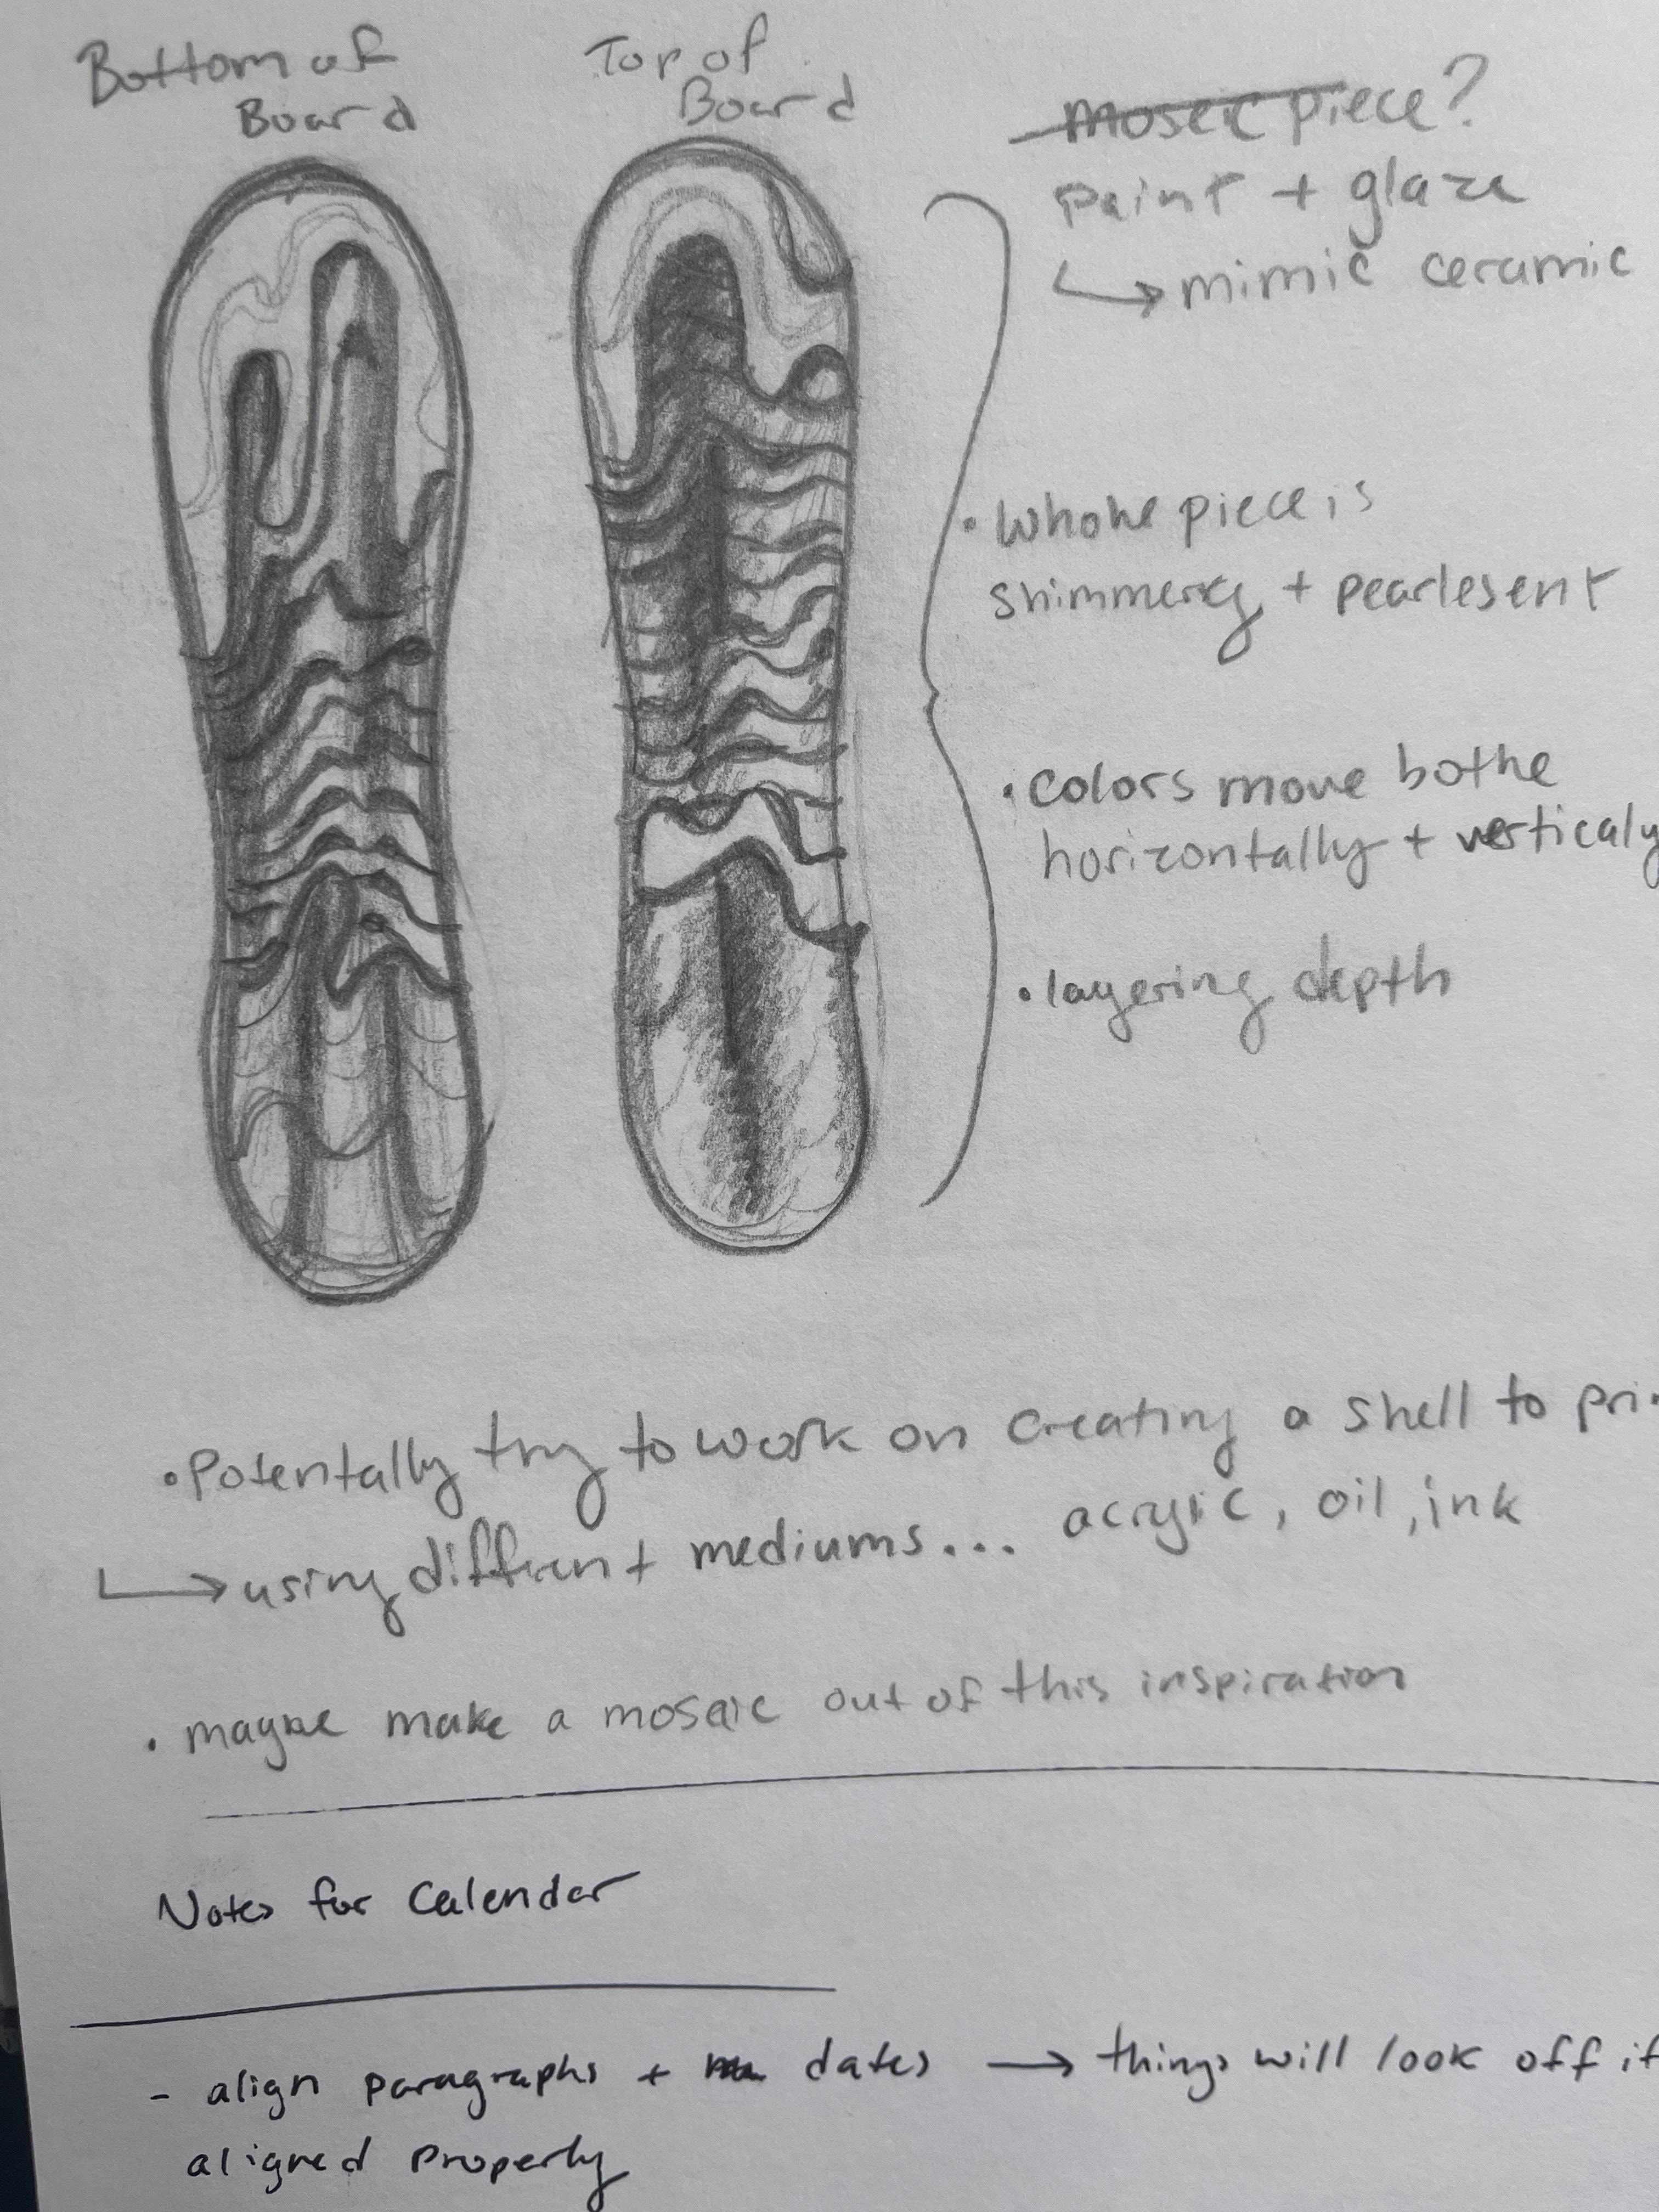 Bottom of
Board
Top of
Board
moseic piece?
paint + glaze
↳ mimic ceramic
• Whole piece is
shimmery + pearlesent
• colors move bothe
horizontally + verticaly
• layering depth
• Potentally try to work on creating a shell to pri
↳ using diffrent mediums... acrylic, oil, ink
• maybe make a mosaic out of this inspiration
Notes for Calendar
- align paragraphs + dates → things will look off if
aligned properly